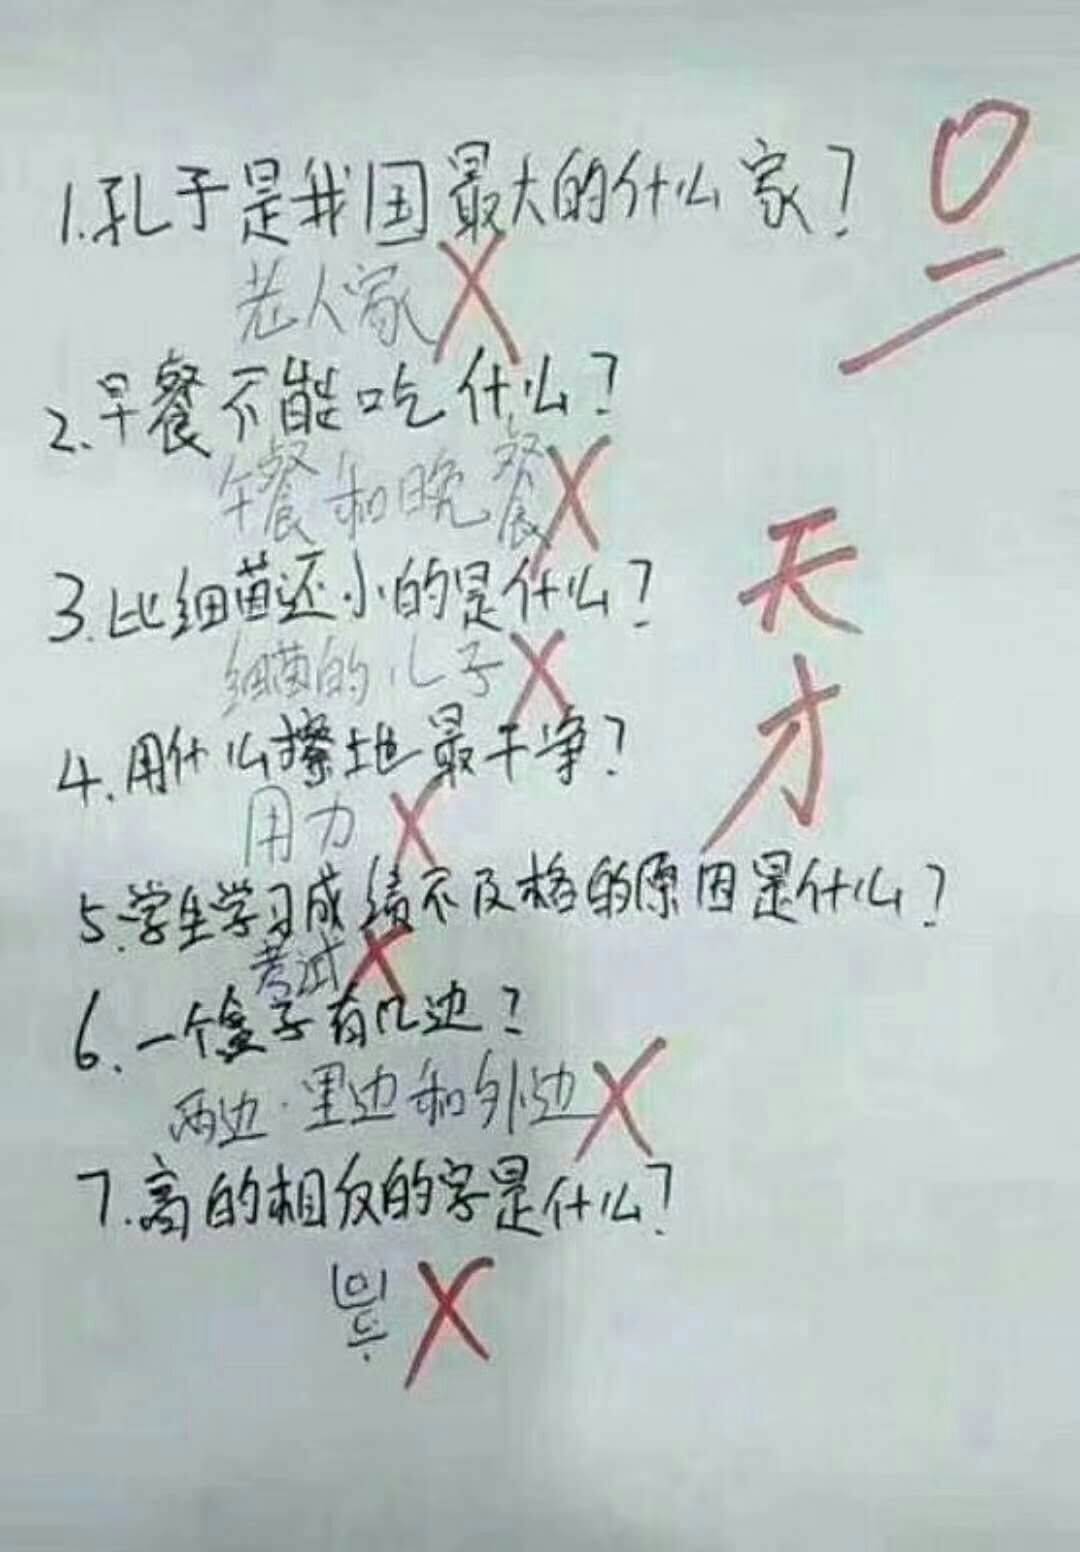 1.孔子是我国最大的什么家？
老人家
2.早餐不能吃什么？
午餐和晚餐
3.比细菌还小的是什么？
细菌的儿子
4.用什么擦地最干净？
用力
5.学生学习成绩不及格的原因是什么？
考试
6.一个盒子有几边？
两边.里边和外边
7.高的相反的字是什么？
0
天才